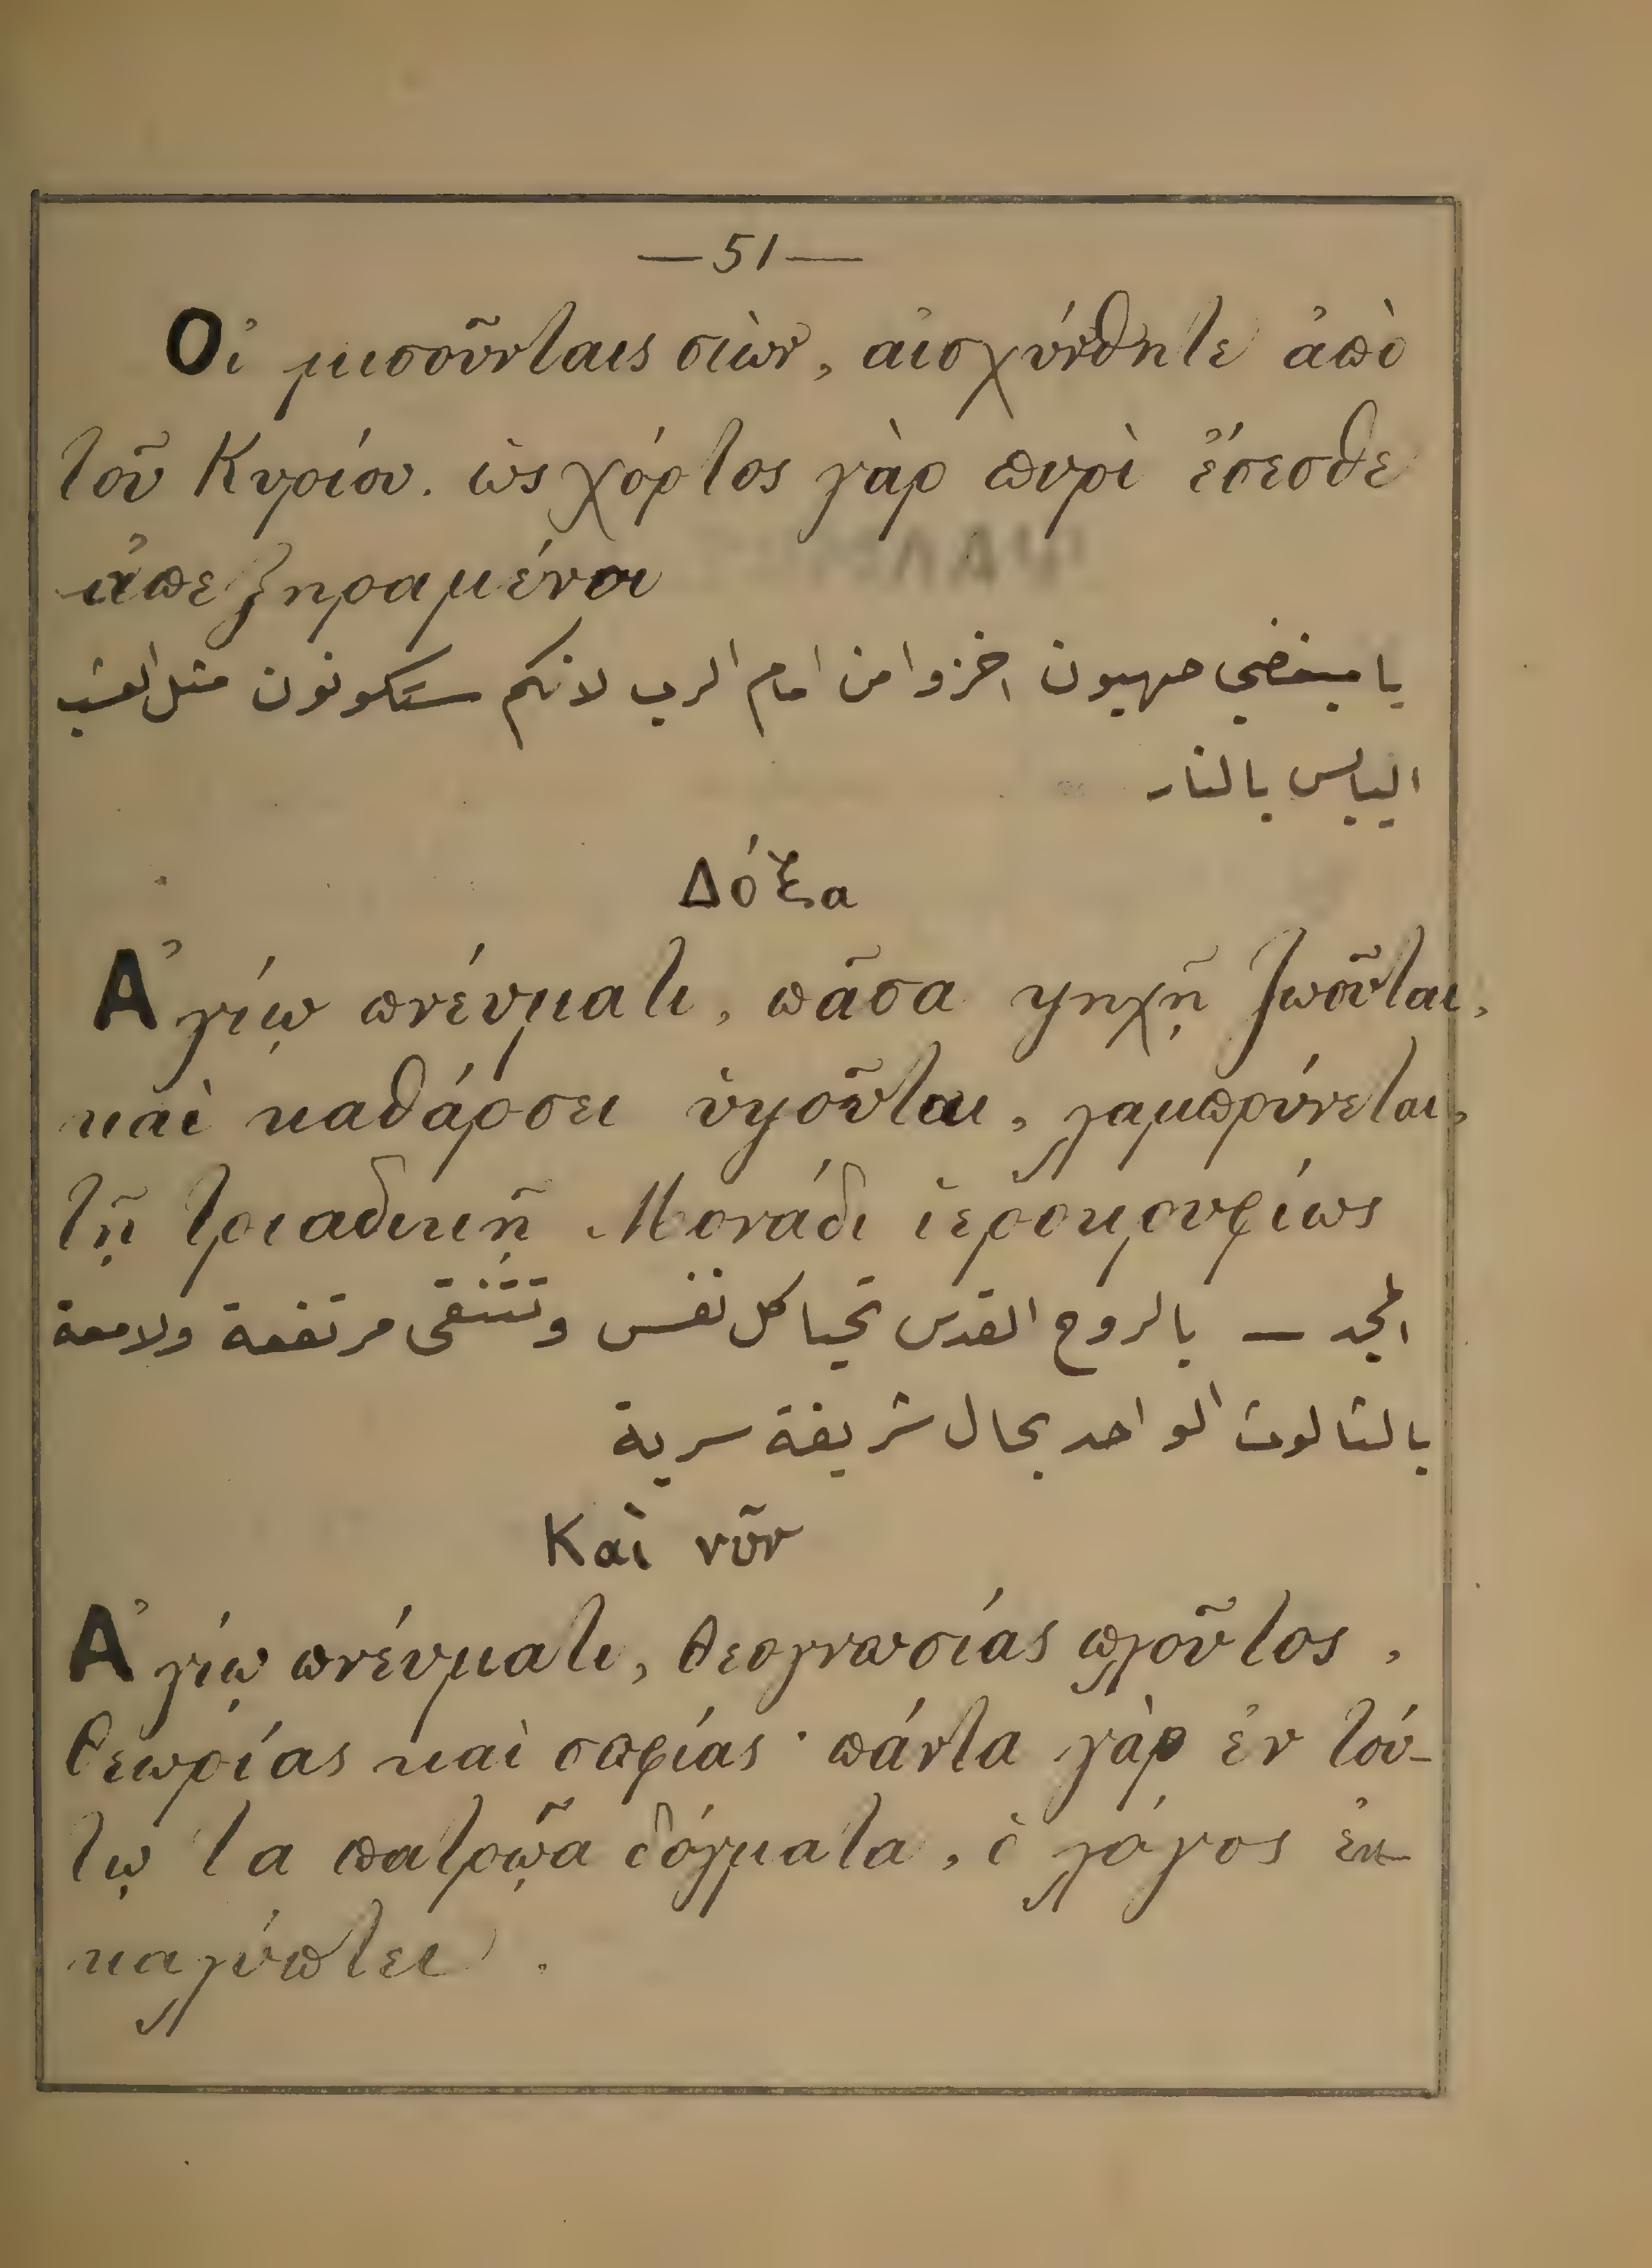 —51—
Οἰ μισοῦνταις σιὼν, αἰσχύνθητε ἀπὸ
τοῦ Κυρίου. ὡς χόρτος γὰρ πυρὶ ἔσεσθε
ἀπεξηραμένοι
يا مبغضي صهيون اخزوا من امام الرب لانكم ستكونون مثل العشب
اليابس بالنار
Δόξα
Ἀγίῳ πνέυματι, πᾶσα ψηχῇ ζωοῦται,
καὶ καθάρσει ὑψοῦται, λαμπρύνεται,
τῇ τριαδικῇ Μονάδι ἱεροκρυφίως
المجد — بالروح القدس تحيا كل نفس وتتنقى مرتفعة ولامعة
بالثالوث الواحد بحال شريفة سرية
Καὶ νῦν
Ἀγίῳ πνέυματι, θεογνωσίας πλοῦτος,
θεωρίας καὶ σοφίας· πάντα γὰρ ἐν τού-
τῳ τα πατρῷα δόγματα, ὁ λόγος ἐκ-
καλύπτει.